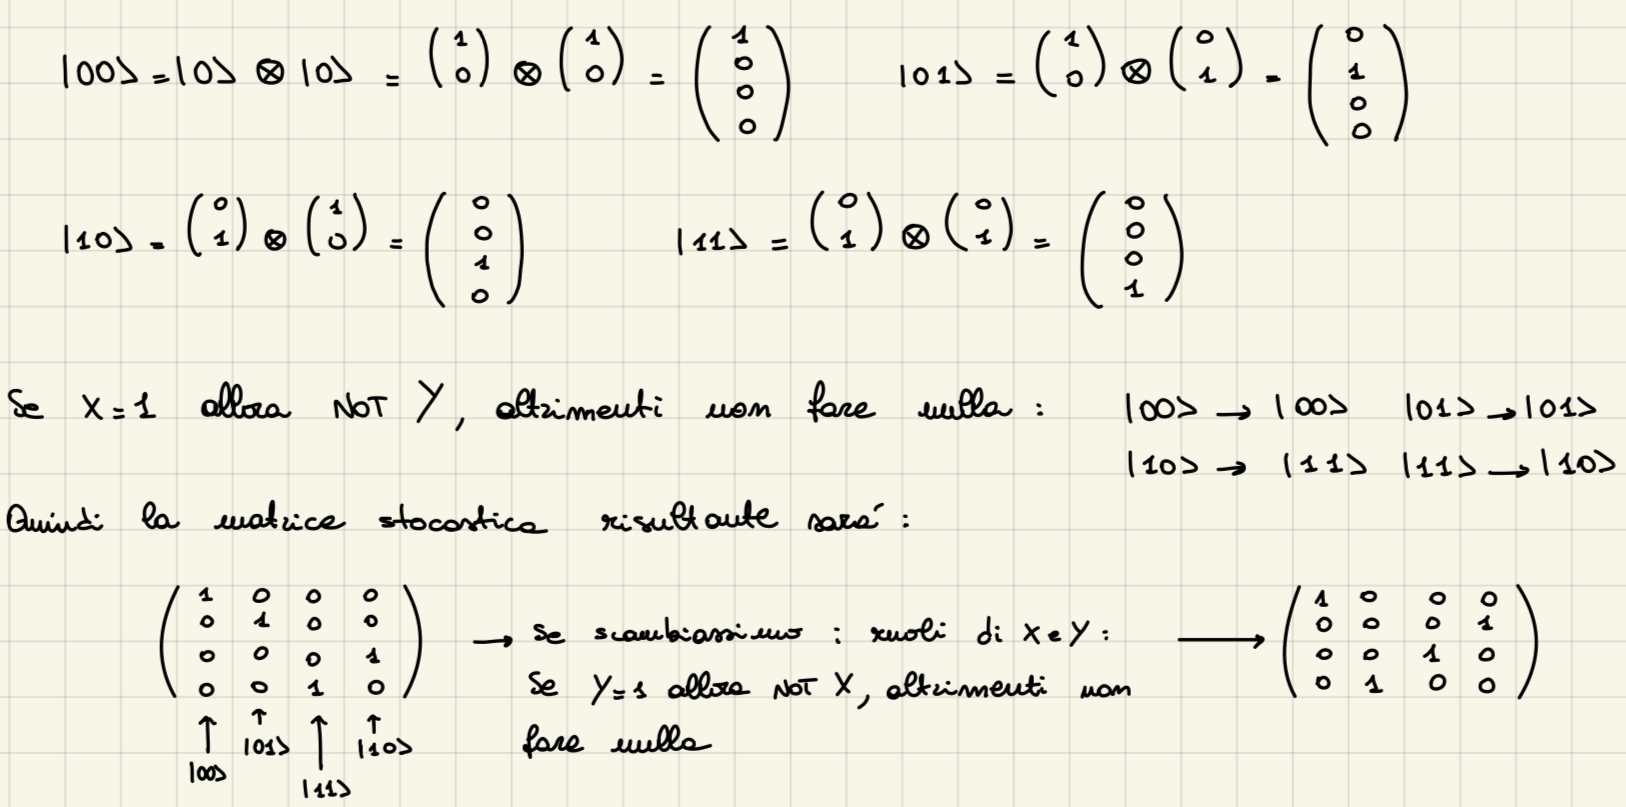 |00> = |0> ⊗ |0> = (1 0) ⊗ (1 0) = (1 0 0 0) |01> = (1 0) ⊗ (0 1) = (0 1 0 0)
|10> = (0 1) ⊗ (1 0) = (0 0 1 0) |11> = (0 1) ⊗ (0 1) = (0 0 0 1)
Se X = 1 allora NOT Y, altrimenti non fare nulla : |00> → |00> |01> → |01>
|10> → |11> |11> → |10>
Quindi la matrice stocastica risultante sará :
1 0 0 0
0 1 0 0
0 0 0 1
0 0 1 0
↑ ↑ ↑ ↑
|01> |10>
|00>
|11>
→ Se scambiassimo i ruoli di X e Y :
Se Y=1 allora NOT X, altrimenti non
fare nulla
→
1 0 0 0
0 0 0 1
0 0 1 0
0 1 0 0